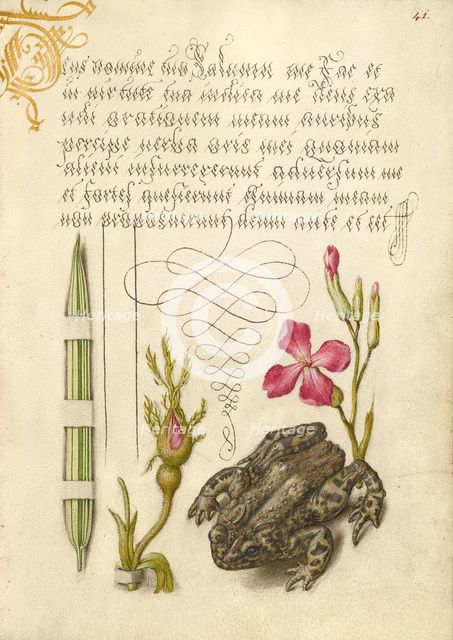 41.
nomine tuo Saluum me Fac et
in uirtute tua iudica me Deus exa
udi orationem meam auribus
percipe uerba oris mei quoniam
alieni insurrexerunt aduersum me
et fortes quesierunt animam meam
non proposuerunt deum ante et
Heritage Heritage
Heritage Heritage
Heritage Heritage